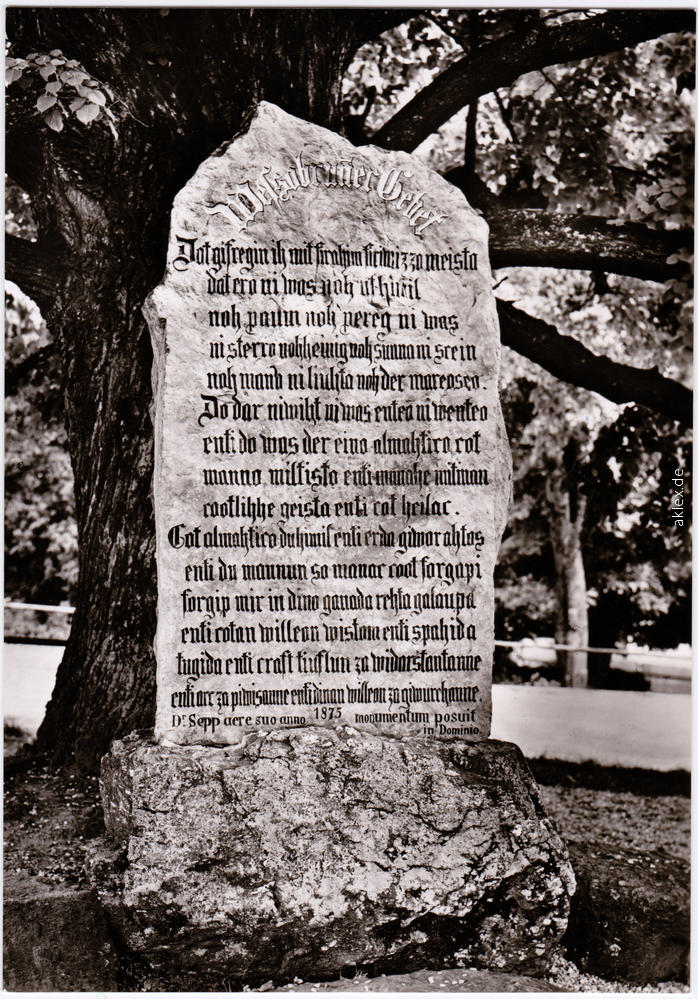 Wessobrunner Gebet
Dat gifregin ih mit firahim firiwizzo meista
dat ero ni was noh ufhimil
noh paum noh pereg ni was
ni sterro nohheinig noh sunna ni scein
noh mano ni liuhta noh der mareoseo.
Do dar niwiht ni was enteo ni wenteo
enti do was der eino almahtico cot
manno miltisto enti manake mitman
cootlihhe geista enti cot heilac.
Cot almahtico du himil enti erda giworahtos
enti du mannun so manac coot forgapi
forgip mir in dino ganada rehta galaupa
enti cotan willeon wistom enti spahida
tugida enti craft tiuflun za widarstantanne
enti arc za piwisanne enti dinan willeon za giwurchanne.
Dr. Sepp aere suo anno 1875 monumentum posuit
in Domino.
aklex.de